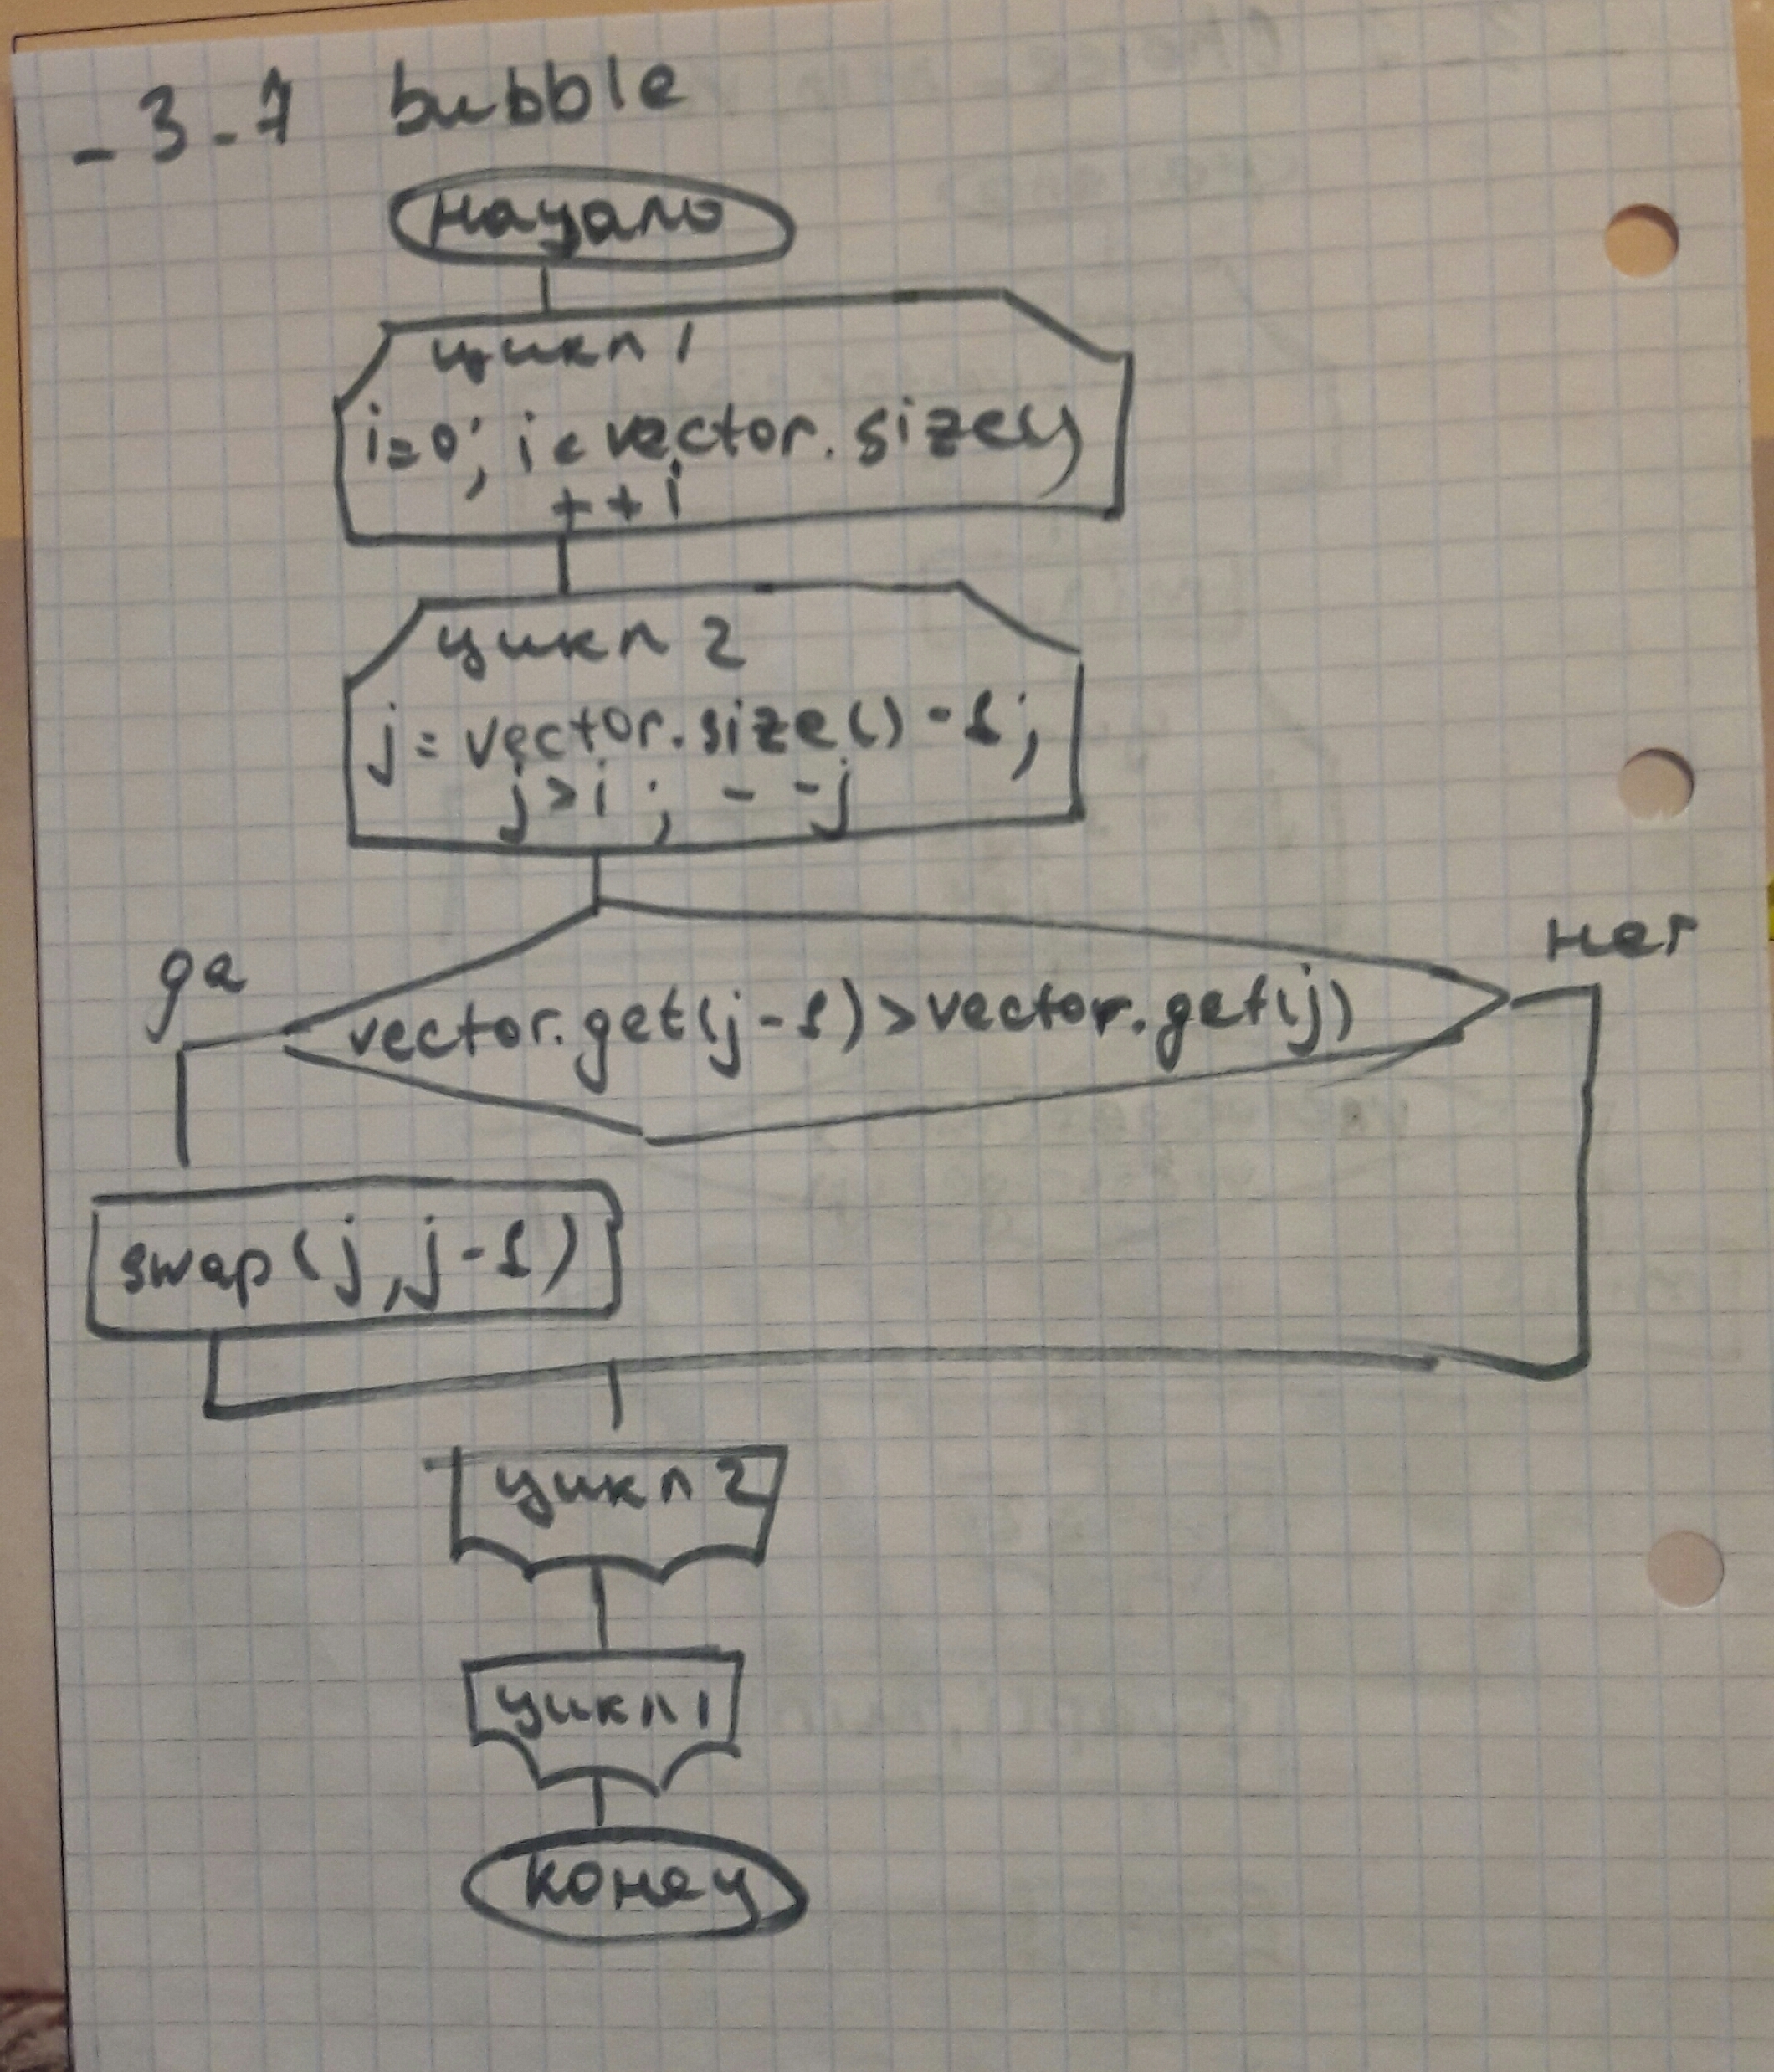 - 3 - 7 bubble
начало
цикл 1
i=0; i < vector.size()
++i
цикл 2
j = vector.size() - 1;
j > i ; --j
да
нет
vector.get(j-1) > vector.get(j)
swap(j, j-1)
цикл 2
цикл 1
конец